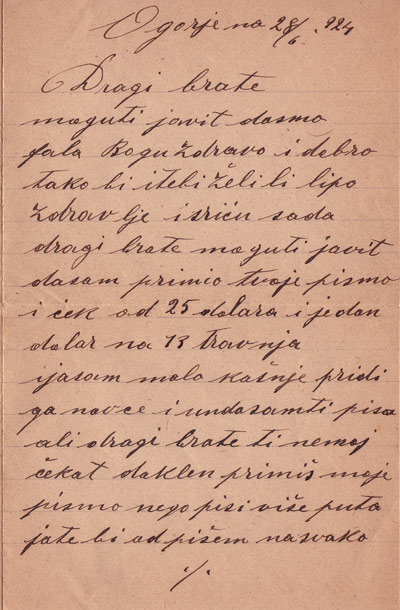 Ogorje na 28/6. 924
Dragi brate
moguti javit dasmo
fala Bogu zdravo i dobro
tako bi i tebi želili lipo
zdravlje i sriću sada
dragi brate moguti javit
dasam primio tvoje pismo
i ček od 25 dolara i jedan
dolar na 13 travnja
ijasam malo kašnje pridi
ga novce i undasamti pisa
ali dragi brate ti nemoj
čekat daklen primiš moje
pismo nego pisi više puta
jate bi od pišem nasvako
./.